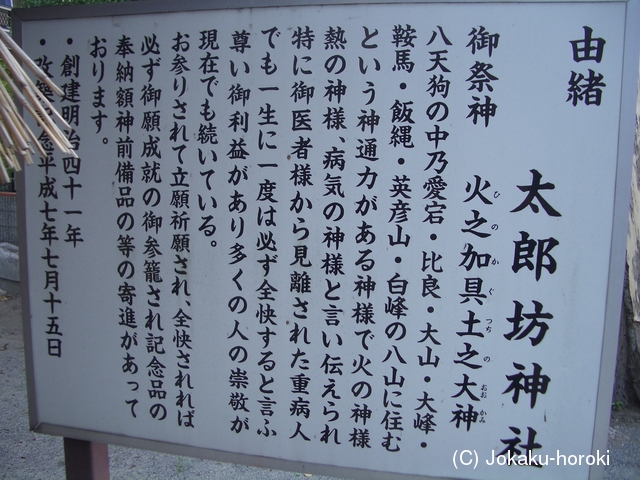 由緒
太郎坊神社
御祭神 火之加具土之大神
ひのかぐつちのおおかみ
八天狗の中乃愛宕・比良・大山・大峰・
鞍馬・飯縄・英彦山・白峰の八山に住む
という神通力がある神様で火の神様
熱の神様、病気の神様と言い伝えられ
特に御医者様から見離された重病人
でも一生に一度は必ず全快すると言ふ
尊い御利益があり多くの人の崇敬が
現在でも続いている。
お参りされて立願祈願され、全快されれば
必ず御願成就の御参籠され記念品の
奉納額神前備品の等の寄進があって
おります。
・創建明治四十一年
・改築記念平成七年七月十五日
(C) Jokaku-horoki